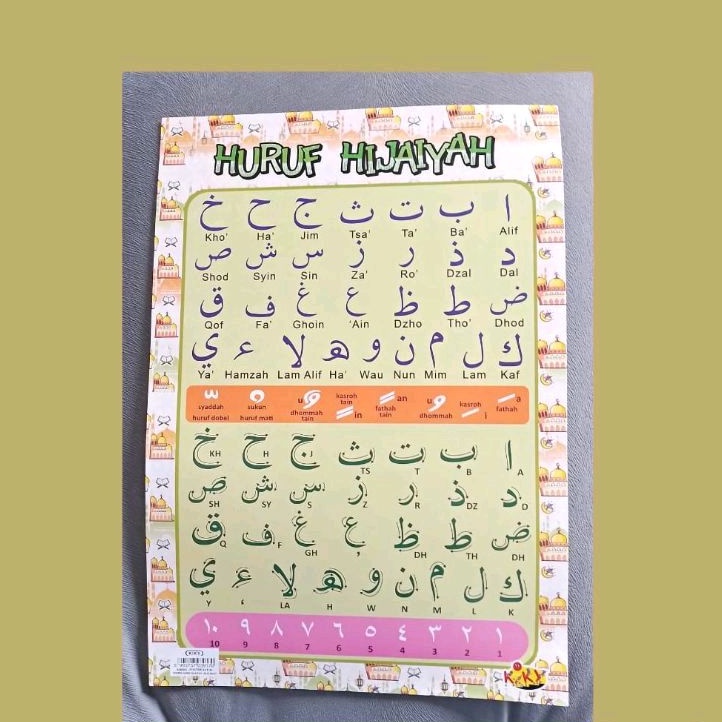 HURUF HIJAIYAH
ا ب ت ث ج ح خ
Kho' Ha' Jim Tsa' Ta' Ba' Alif
د ذ ر ز س ش ص
Shod Syin Sin Za' Ro' Dzal Dal
ض ط ظ ع غ ف ق
Qof Fa' Ghoin 'Ain Dzho Tho' Dhod
ك ل م ن و ه لا ء ي
Ya' Hamzah Lam Alif Ha' Wau Nun Mim Lam Kaf
syaddah huruf dobel
sukun huruf mati
u dhommah tain
kasroh tain in
an fathah tain
u dhommah
kasroh i
a fathah
ا ب ت ث ج ح خ
KH H J TS T B A
د ذ ر ز س ش ص
SH SY S Z R DZ D
ض ط ظ ع غ ف ق
Q F GH ' DH TH DH
ك ل م ن و ه لا ء ي
Y ' LA H W N M L K
١ ٢ ٣ ٤ ٥ ٦ ٧ ٨ ٩ ١٠
10 9 8 7 6 5 4 3 2 1
KIKY
KIKY